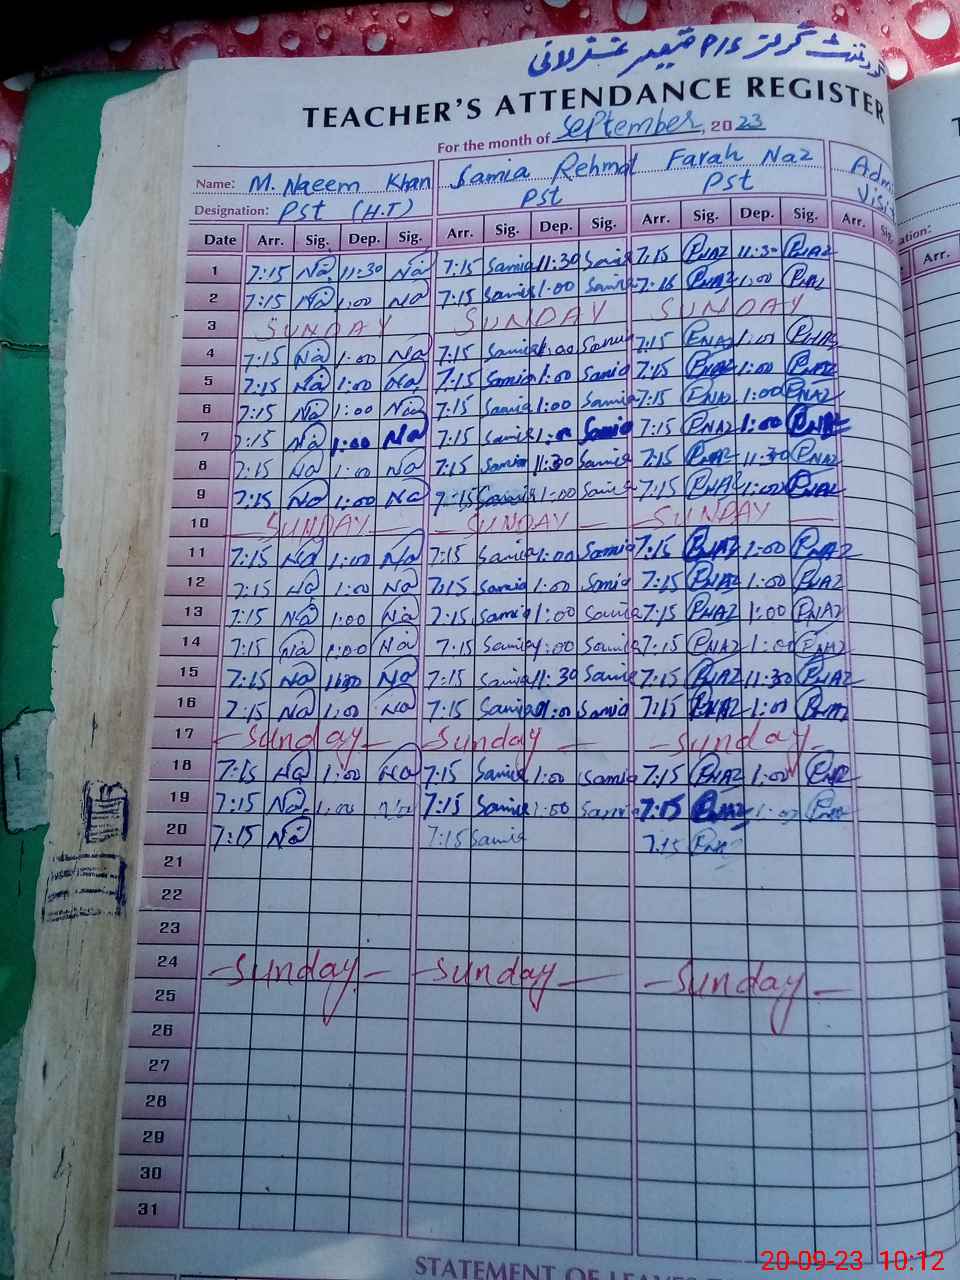 گورنمنٹ گرلز P/S
TEACHER'S ATTENDANCE REGISTER
For the month of September, 2023
Name: M. Naeem Khan Samia Rehmat Farah Naz
Designation: Pst (H.T) Pst Pst
Date Arr. Sig. Dep. Sig. Arr. Sig. Dep. Sig. Arr. Sig. Dep. Sig. Arr. Sig. Arr.
1 7:15 Na 11:30 Na 7:15 Samia 11:30 Samia 7:15 PNAZ 11:30 PNAZ
2 7:15 Na 1:00 Na 7:15 Samia 1:00 Samia 7:15 PNAZ 1:00 PNAZ
3 SUNDAY SUNDAY SUNDAY
4 7:15 Na 1:00 Na 7:15 Samia 1:00 Samia 7:15 PNAZ 1:00 PNAZ
5 7:15 Na 1:00 Na 7:15 Samia 1:00 Samia 7:15 PNAZ 1:00 PNAZ
6 7:15 Na 1:00 Na 7:15 Samia 1:00 Samia 7:15 PNAZ 1:00 PNAZ
7 7:15 Na 1:00 Na 7:15 Samia 1:00 Samia 7:15 PNAZ 1:00 PNAZ
8 7:15 Na 1:00 Na 7:15 Samia 11:30 Samia 7:15 PNAZ 11:30 PNAZ
9 7:15 Na 1:00 Na 7:15 Samia 1:00 Samia 7:15 PNAZ 1:00 PNAZ
10 SUNDAY SUNDAY SUNDAY
11 7:15 Na 1:00 Na 7:15 Samia 1:00 Samia 7:15 PNAZ 1:00 PNAZ
12 7:15 Na 1:00 Na 7:15 Samia 1:00 Samia 7:15 PNAZ 1:00 PNAZ
13 7:15 Na 1:00 Na 7:15 Samia 1:00 Samia 7:15 PNAZ 1:00 PNAZ
14 7:15 Na 1:00 Na 7:15 Samia 1:00 Samia 7:15 PNAZ 1:00 PNAZ
15 7:15 Na 11:30 Na 7:15 Samia 11:30 Samia 7:15 PNAZ 11:30 PNAZ
16 7:15 Na 1:00 Na 7:15 Samia 1:00 Samia 7:15 PNAZ 1:00 PNAZ
17 Sunday Sunday Sunday
18 7:15 Na 1:00 Na 7:15 Samia 1:00 Samia 7:15 PNAZ 1:00 PNAZ
19 7:15 Na 1:00 Na 7:15 Samia 1:00 Samia 7:15 PNAZ 1:00 PNAZ
20 7:15 Na 7:15 Samia 7:15 PNAZ
21
22
23
24 Sunday Sunday Sunday
25
26
27
28
29
30
31
STATEMENT OF
20-09-23 10:12